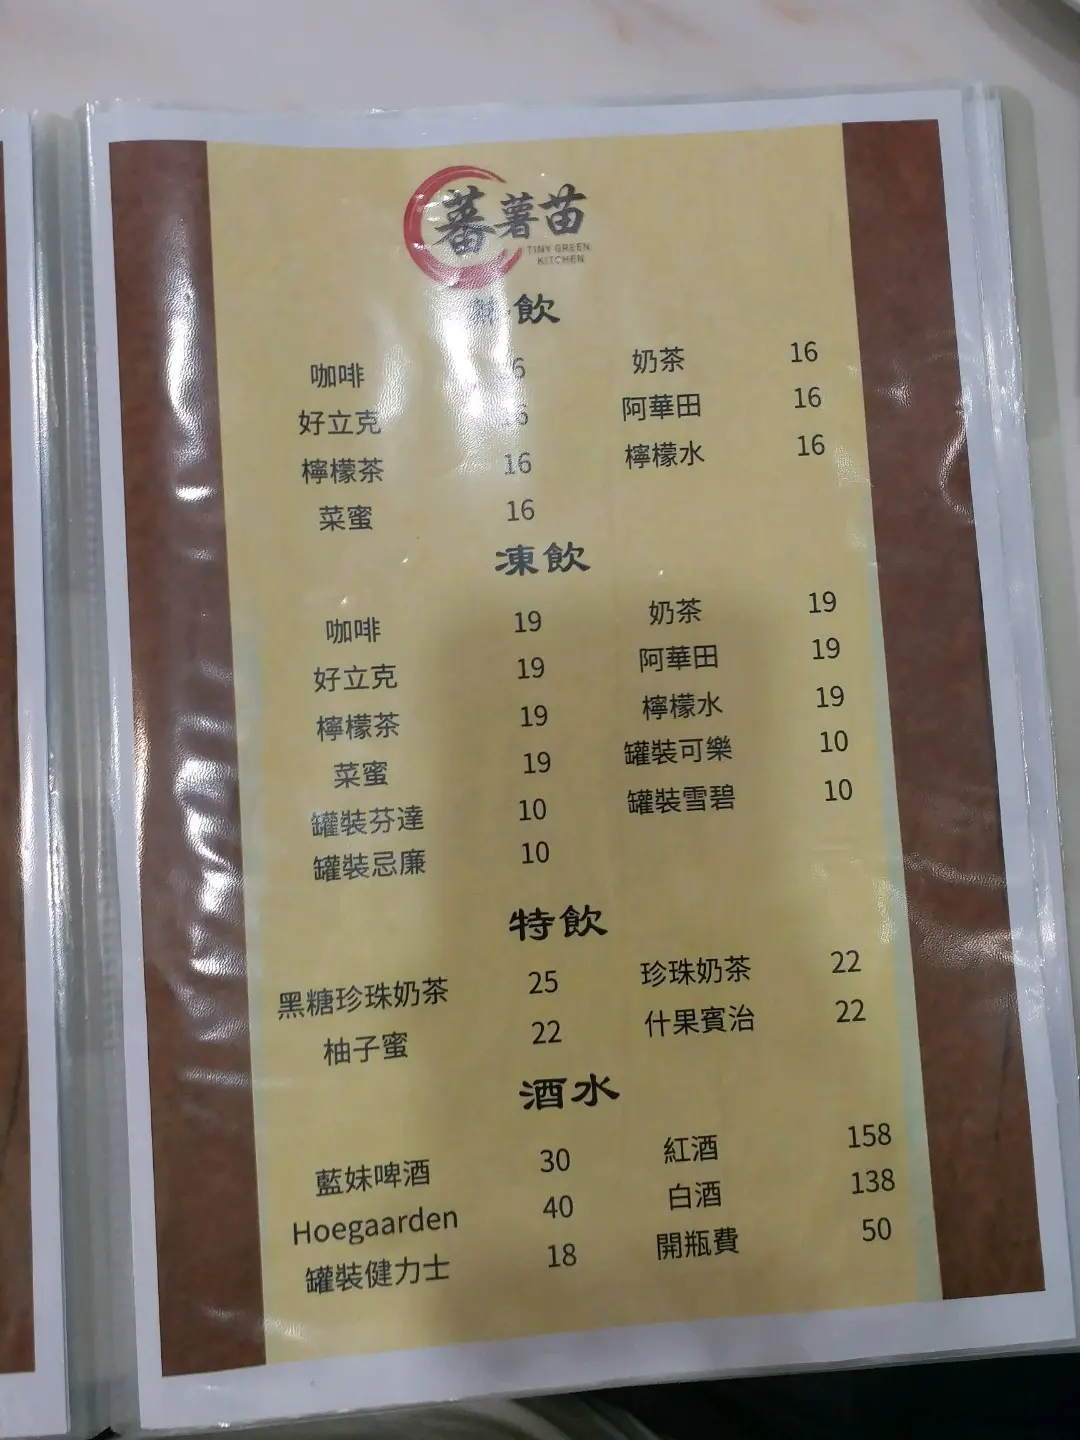 蕃薯苗
TINY GREEN
KITCHEN
飲
咖啡 奶茶 16
好立克 阿華田 16
檸檬茶 16 檸檬水 16
菜蜜 16
凍飲
咖啡 19 奶茶 19
好立克 19 阿華田 19
檸檬茶 19 檸檬水 19
菜蜜 19 罐裝可樂 10
罐裝芬達 10 罐裝雪碧 10
罐裝忌廉 10
特飲
黑糖珍珠奶茶 25 珍珠奶茶 22
柚子蜜 22 什果賓治 22
酒水
藍妹啤酒 30 紅酒 158
Hoegaarden 40 白酒 138
罐裝健力士 18 開瓶費 50